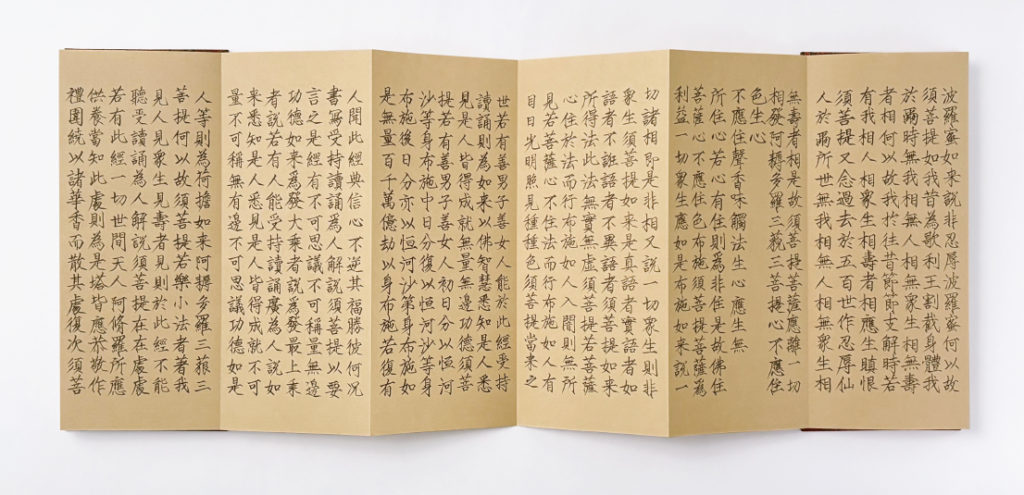 波羅蜜如来說非忍辱波羅蜜何以故
須菩提如我昔為歌利王割截身體我
於爾時無我相無人相無衆生相無壽
者相何以故我於往昔節節支解時若
有我相人相衆生相壽者相應生瞋恨
須菩提又念過去於五百世作忍辱仙
人於爾所世無我相無人相無衆生相
無壽者相是故須菩提菩薩應離一切
相發阿耨多羅三藐三菩提心不應住
色生心
不應住聲香味觸法生心應生無
所住心若心有住則為非住是故佛住
菩薩心不應住色布施須菩提菩薩為
利益一切衆生應如是布施如来說一
切諸相即是非相又說一切衆生則非
衆生須菩提如来是真語者實語者如
語者不誑語者不異語者須菩提如来
所得法此法無實無虚須菩提若菩薩
心住於法而行布施如人入闇則無所
見若菩薩心不住法而行布施如人有
目日光明照見種種色須菩提當来之
世若有善男子善女人能於此經受持
讀誦則為如来以佛智慧悉知是人悉
見是人皆得成就無量無邊功德須菩
提若有善男子善女人初日分以恒河
沙等身布施中日分復以恒河沙等身
布施後日分亦以恒河沙第身布施如
是無量百千萬億劫以身布施若復有
人聞此經典信心不逆其福勝彼何况
書寫受持讀誦為人解說須菩提以要
言之是經有不可思議不可稱量無邊
功德如来爲發大乘者說為發最上乘
者說若有人能受持讀誦廣為人說如
来悉知是人悉見是人皆得成就不可
量不可稱無有邊不可思議功德如是
人等則為荷擔如来阿耨多羅三藐三
菩提何以故須菩提若樂小法者著我
見人見衆生見壽者見則於此經不能
聽受讀誦為人解說須菩提在在處處
若有此經一切世間天人阿修羅所應
供養當知此處則為是塔皆應恭敬作
禮圍繞以諸華香而散其處復次須菩